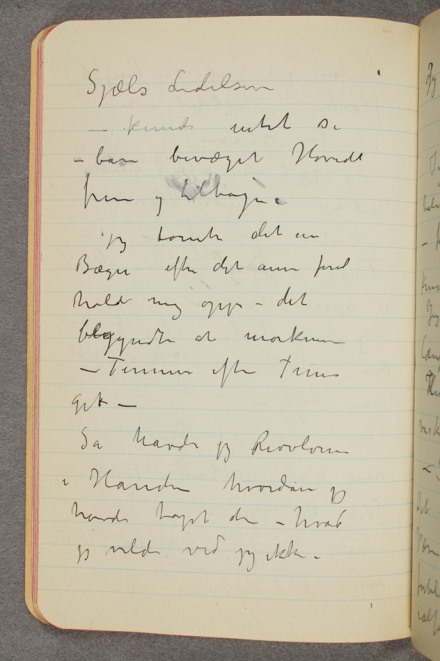 Sjæls Lidelser
– kunde intet se
– bare bevæget Hovedt
frem og tilbage.
jeg tømte det en
Bæger efter det annet for at
holde mig oppe – det
begyndte at mørkne
– Timme efter Time
gik –
Så havde jeg Revolveren
i Hånden hvordan jeg
havde taget den – hvad
jeg vilde ved jeg ikke.